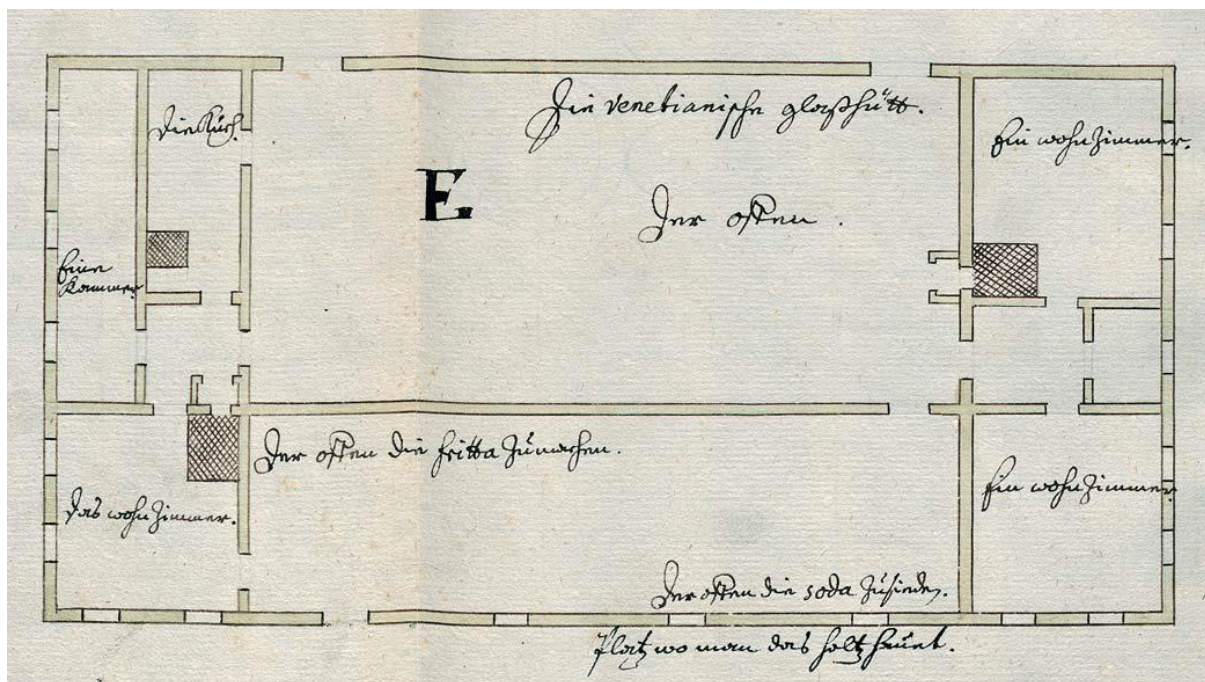 Die Venetianische glaßhütt.
Die Kuch.
Ein wohn Zimmer.
E.
Der offen.
Eine
Kammer
Der offen die fritta Zumachen.
Das wohn Zimmer.
Ein wohn Zimmer
Der offen die soda Zusieden.
Platz wo man das holtz hauet.